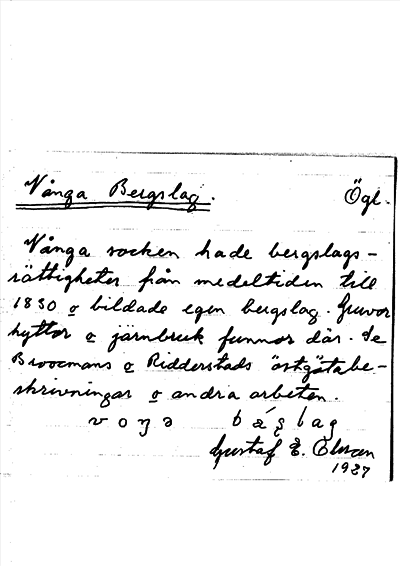 Vånga Bergslag. Ögl.
Vånga socken hade bergslags-
rättigheter från medeltiden till
1830 o bildade egen bergslag. Gruvor
hyttor o järnbruk funnos där. Se
Broocmans o Ridderstads östgötabe-
skrivningar o andra arbeten.
Gustaf E.
1927